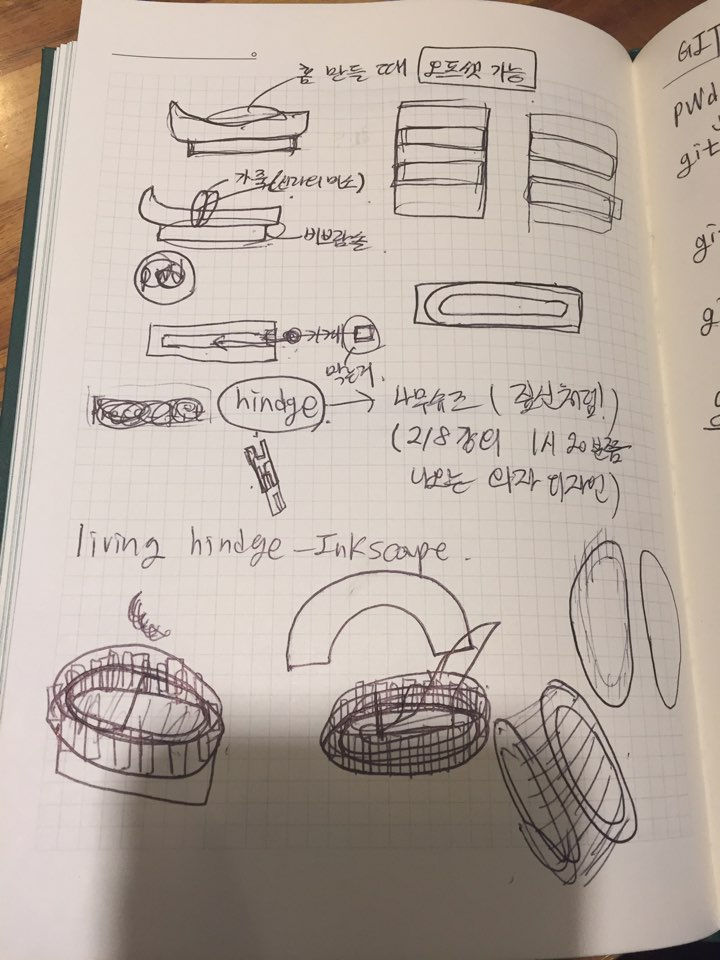 홈 만들 때 오프셋 가능
가죽(신라의 미소)
비브람솔
pwd
막는거.
hindge → 나무슈즈 ( 짚신처럼! )
( 2/8 강의 1시 20분쯤
나오는 의자 디자인 )
living hindge - Inkscape.
GIT
pwd
git